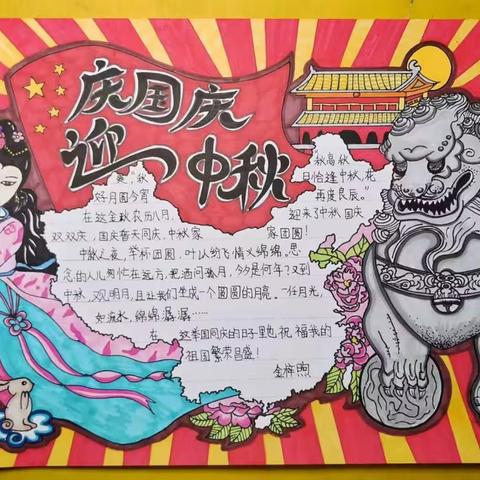 庆国庆
迎中秋
爽,秋
秋高秋
好月圆今宵
日恰逢中秋,花
再度良辰。"
在这金秋农历八月,
迎来了中秋国庆
双双庆,国庆普天同庆,中秋家
家团圆!
中秋之夜,举杯团圆,叶儿纷飞情义绵绵,思
念的人儿匆忙在远方,把酒问孤月,今夕是何年?又到
中秋,观明月,且让我们生成一个圆圆的月亮。一任月光,
如流水,绵绵潺潺……
在 这举国同庆的日子里也祝福我的
祖国繁荣昌盛!
金梓煦